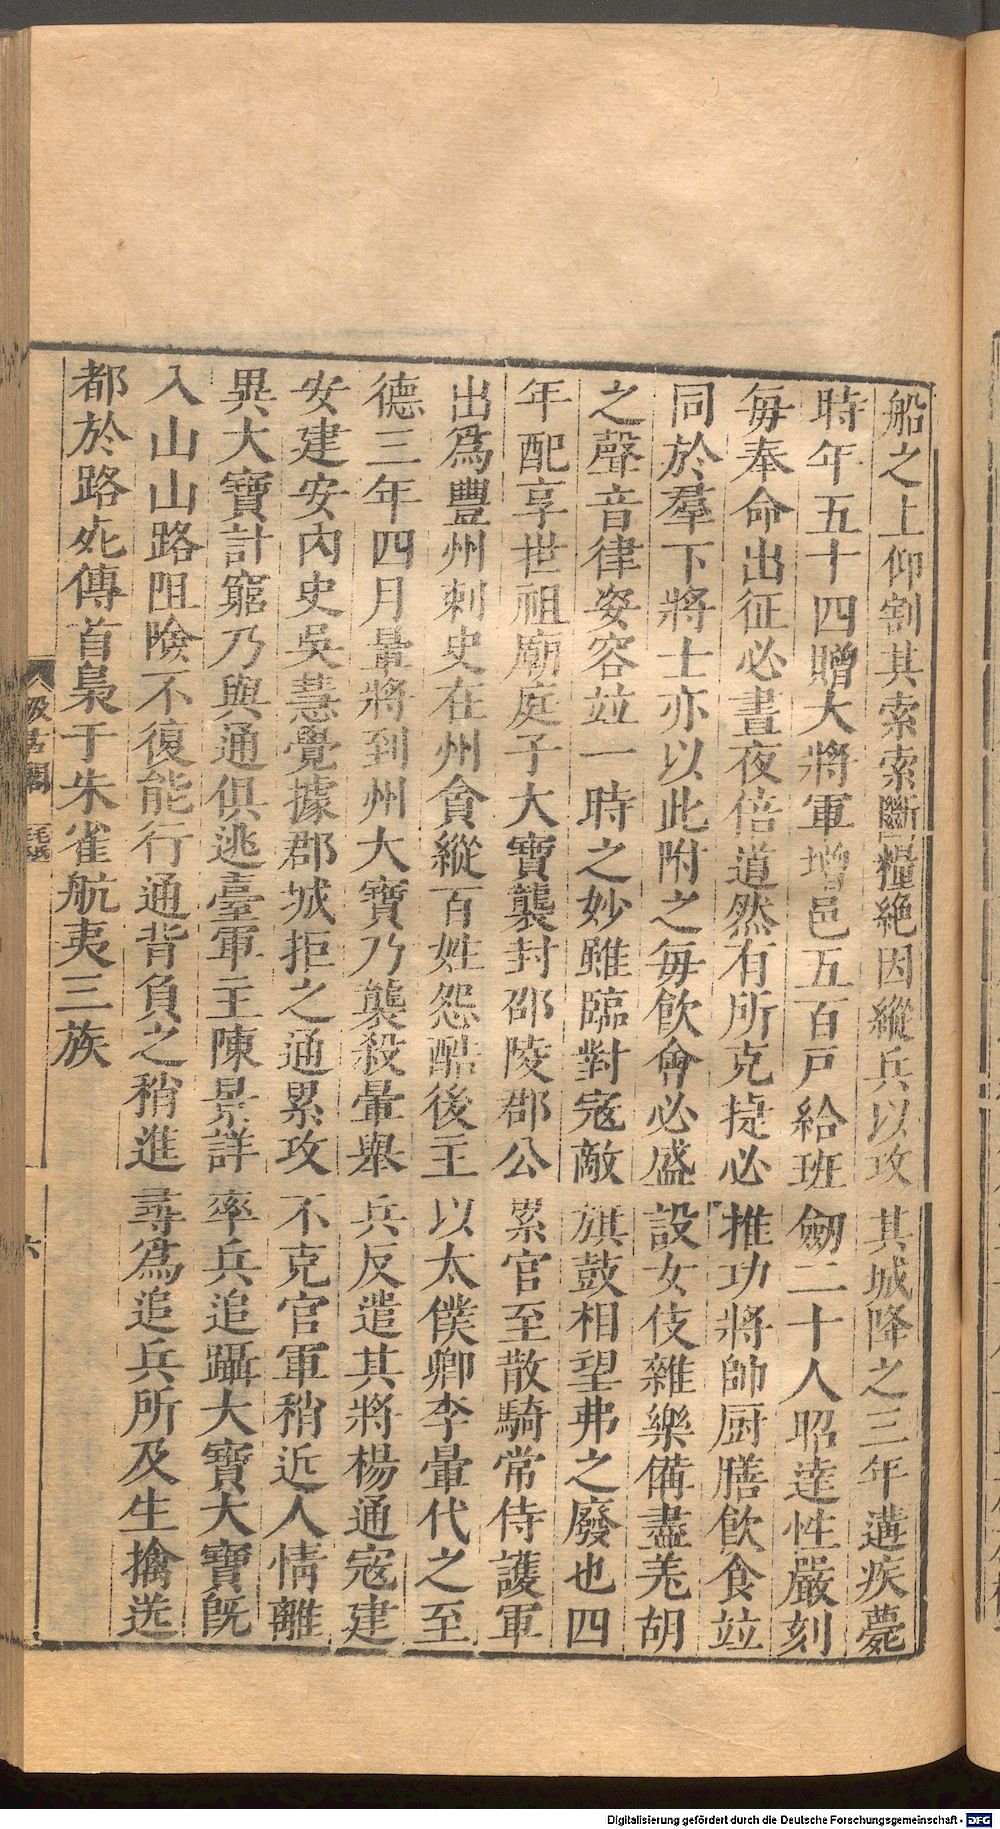 船之上仰割其索索斷糧絶因縱兵以攻其城降之三年遘疾薨
時年五十四贈大將軍增邑五百戸給班劒二十人昭達性嚴刻
每奉命出征必晝夜倍道然有所克捷必推功將帥厨膳飲食竝
同於羣下將士亦以此附之每飲會必盛設女伎雜樂備盡羌胡
之聲音律姿容竝一時之妙雖臨對寇敵旗鼓相望弗之廢也四
年配享世祖廟庭子大寶襲封邵陵郡公累官至散騎常侍護軍
出爲豐州刺史在州貪縱百姓怨酷後主以太僕卿李暈代之至
德三年四月暈將到州大寶乃襲殺暈舉兵反遣其將楊通寇建
安建安內史吳慧覺據郡城拒之通累攻不克官軍稍近人情離
異大寶計窮乃與通俱逃臺軍主陳景詳率兵追躡大寶大寶旣
入山山路阻險不復能行通背負之稍進尋爲追兵所及生擒送
都於路死傳首梟于朱雀航夷三族
汲古閣
毛氏
六
Digitalisierung gefördert durch die Deutsche Forschungsgemeinschaft - DFG